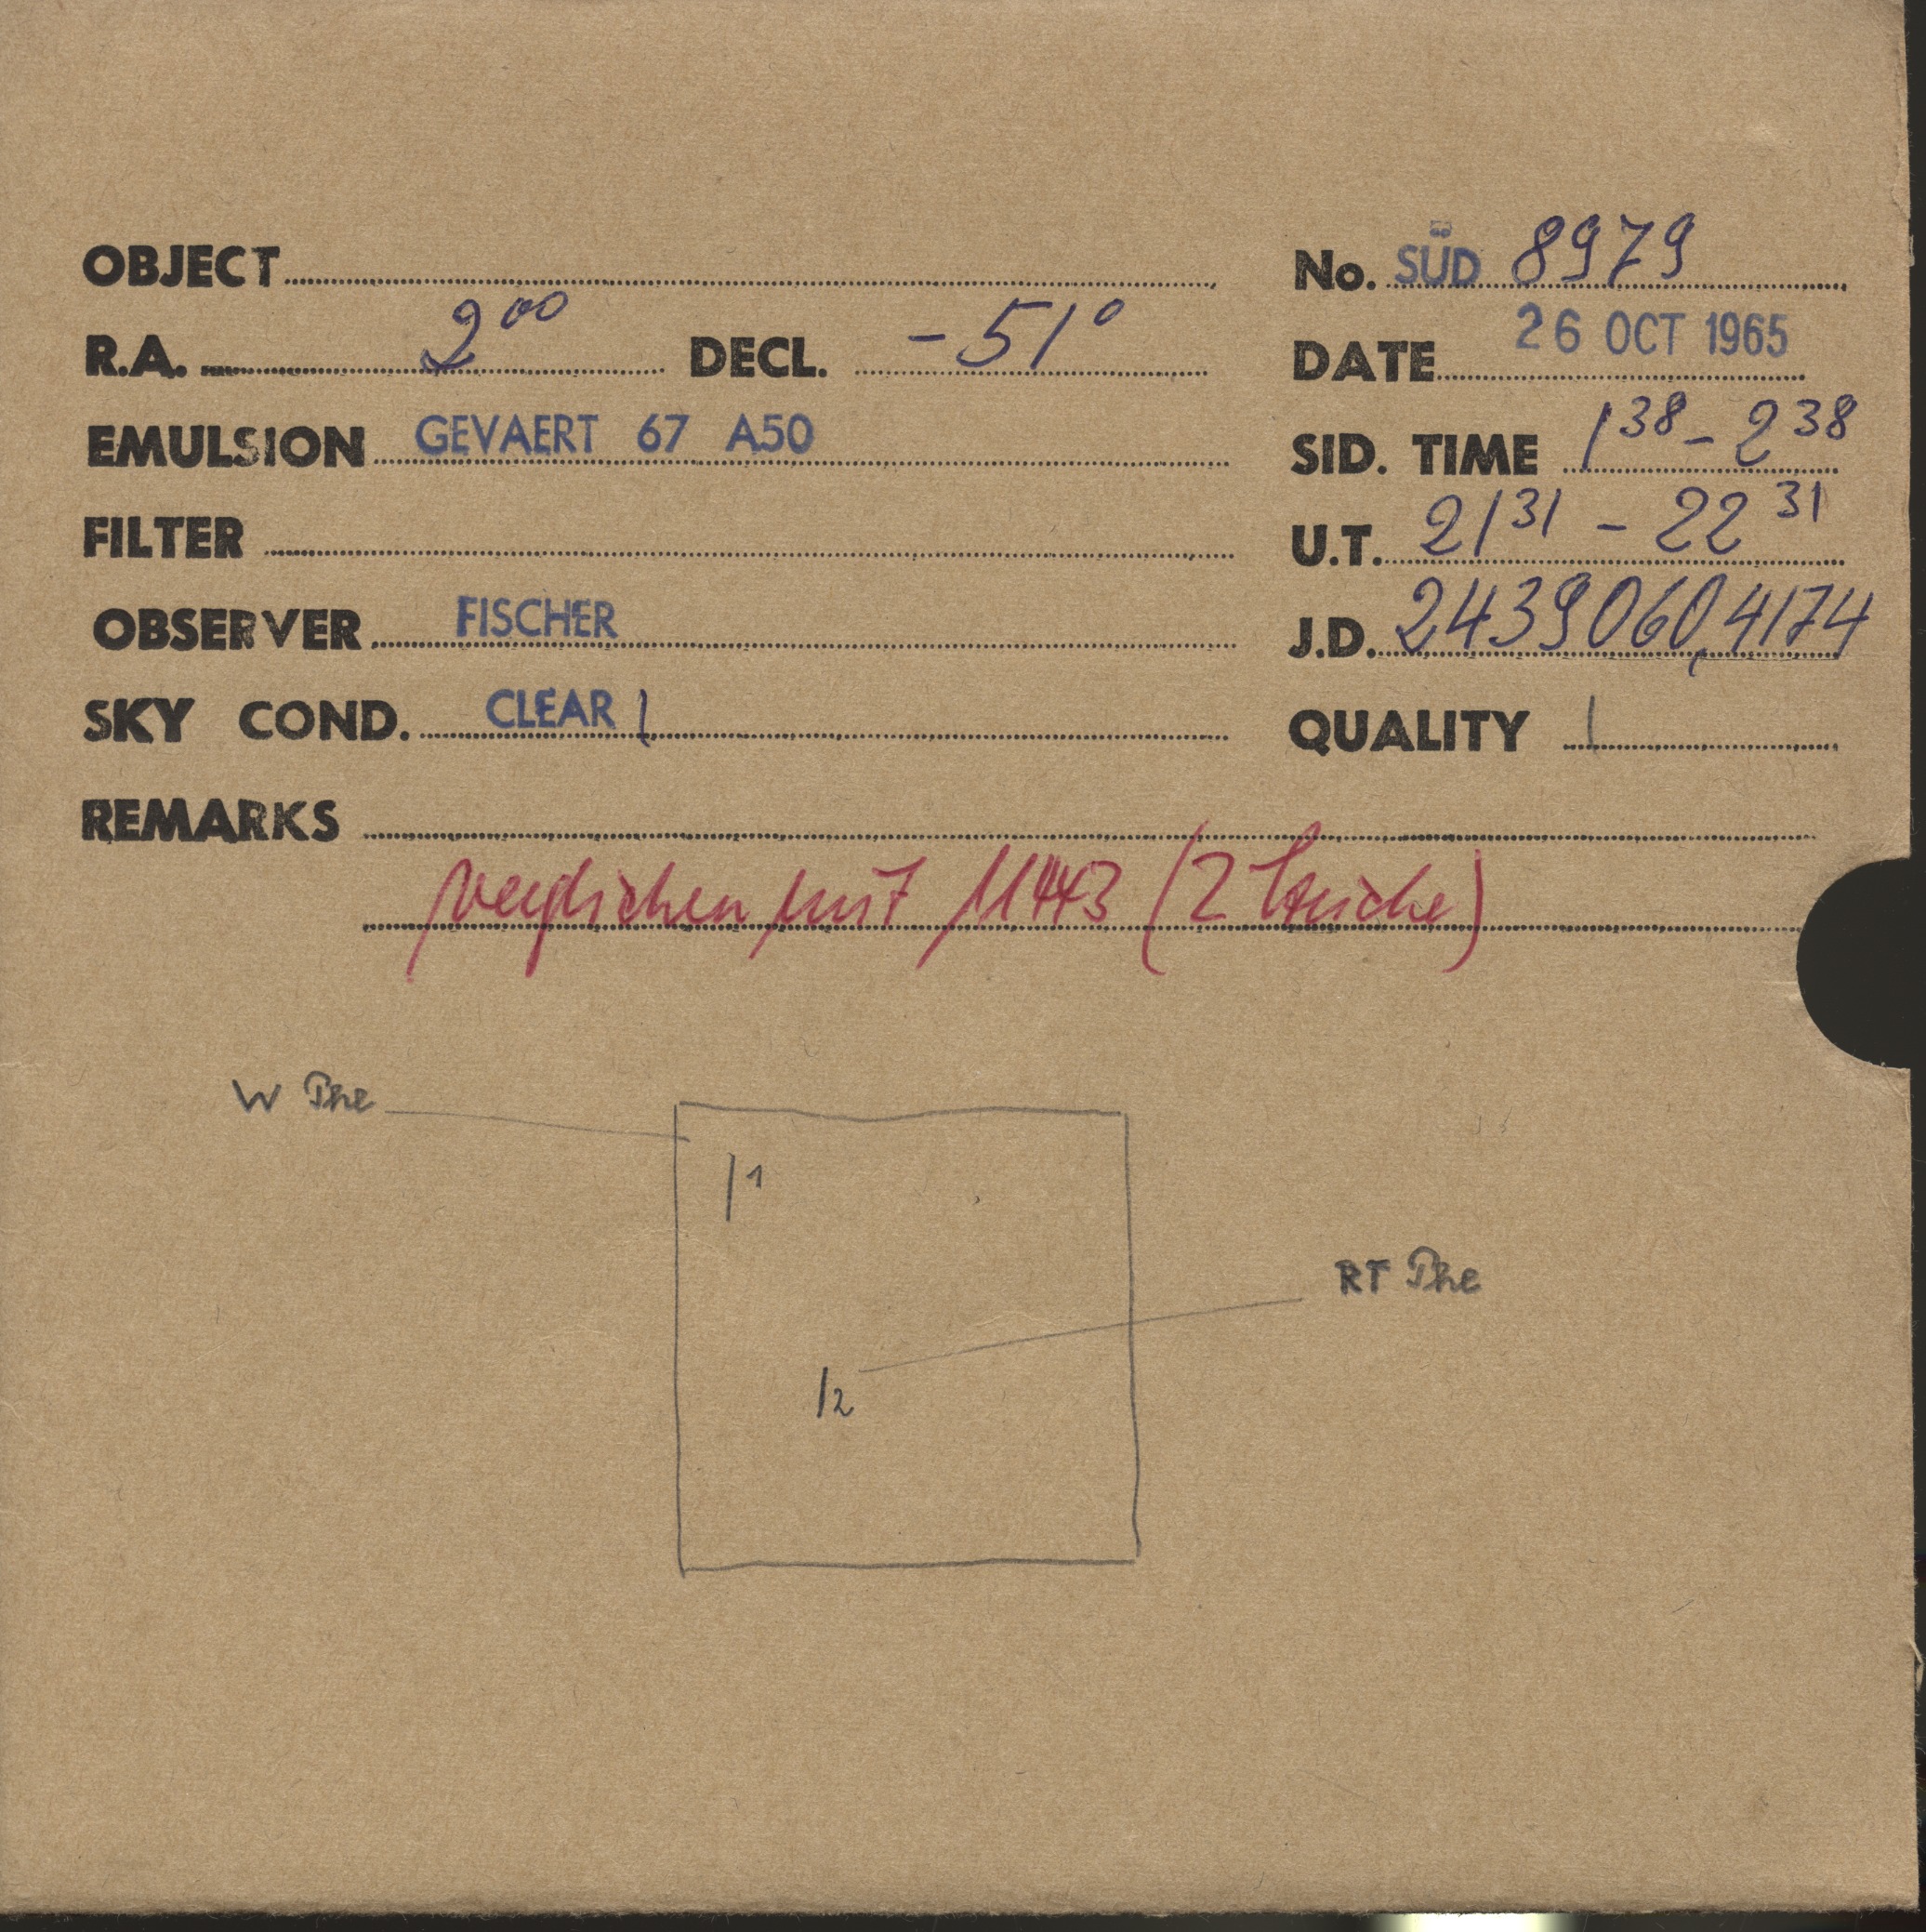 OBJECT
No. SÜD 8979
R.A. 2 00 DECL. -51°
DATE 26 OCT 1965
EMULSION GEVAERT 67 A50
SID. TIME 1 38 - 2 38
FILTER
U.T. 21 31 - 22 31
OBSERVER FISCHER
J.D. 2439060,4174
SKY COND. CLEAR 1
QUALITY 1
REMARKS
verglichen mit 11443 (2 Striche)
W Phe
1
RT Phe
2